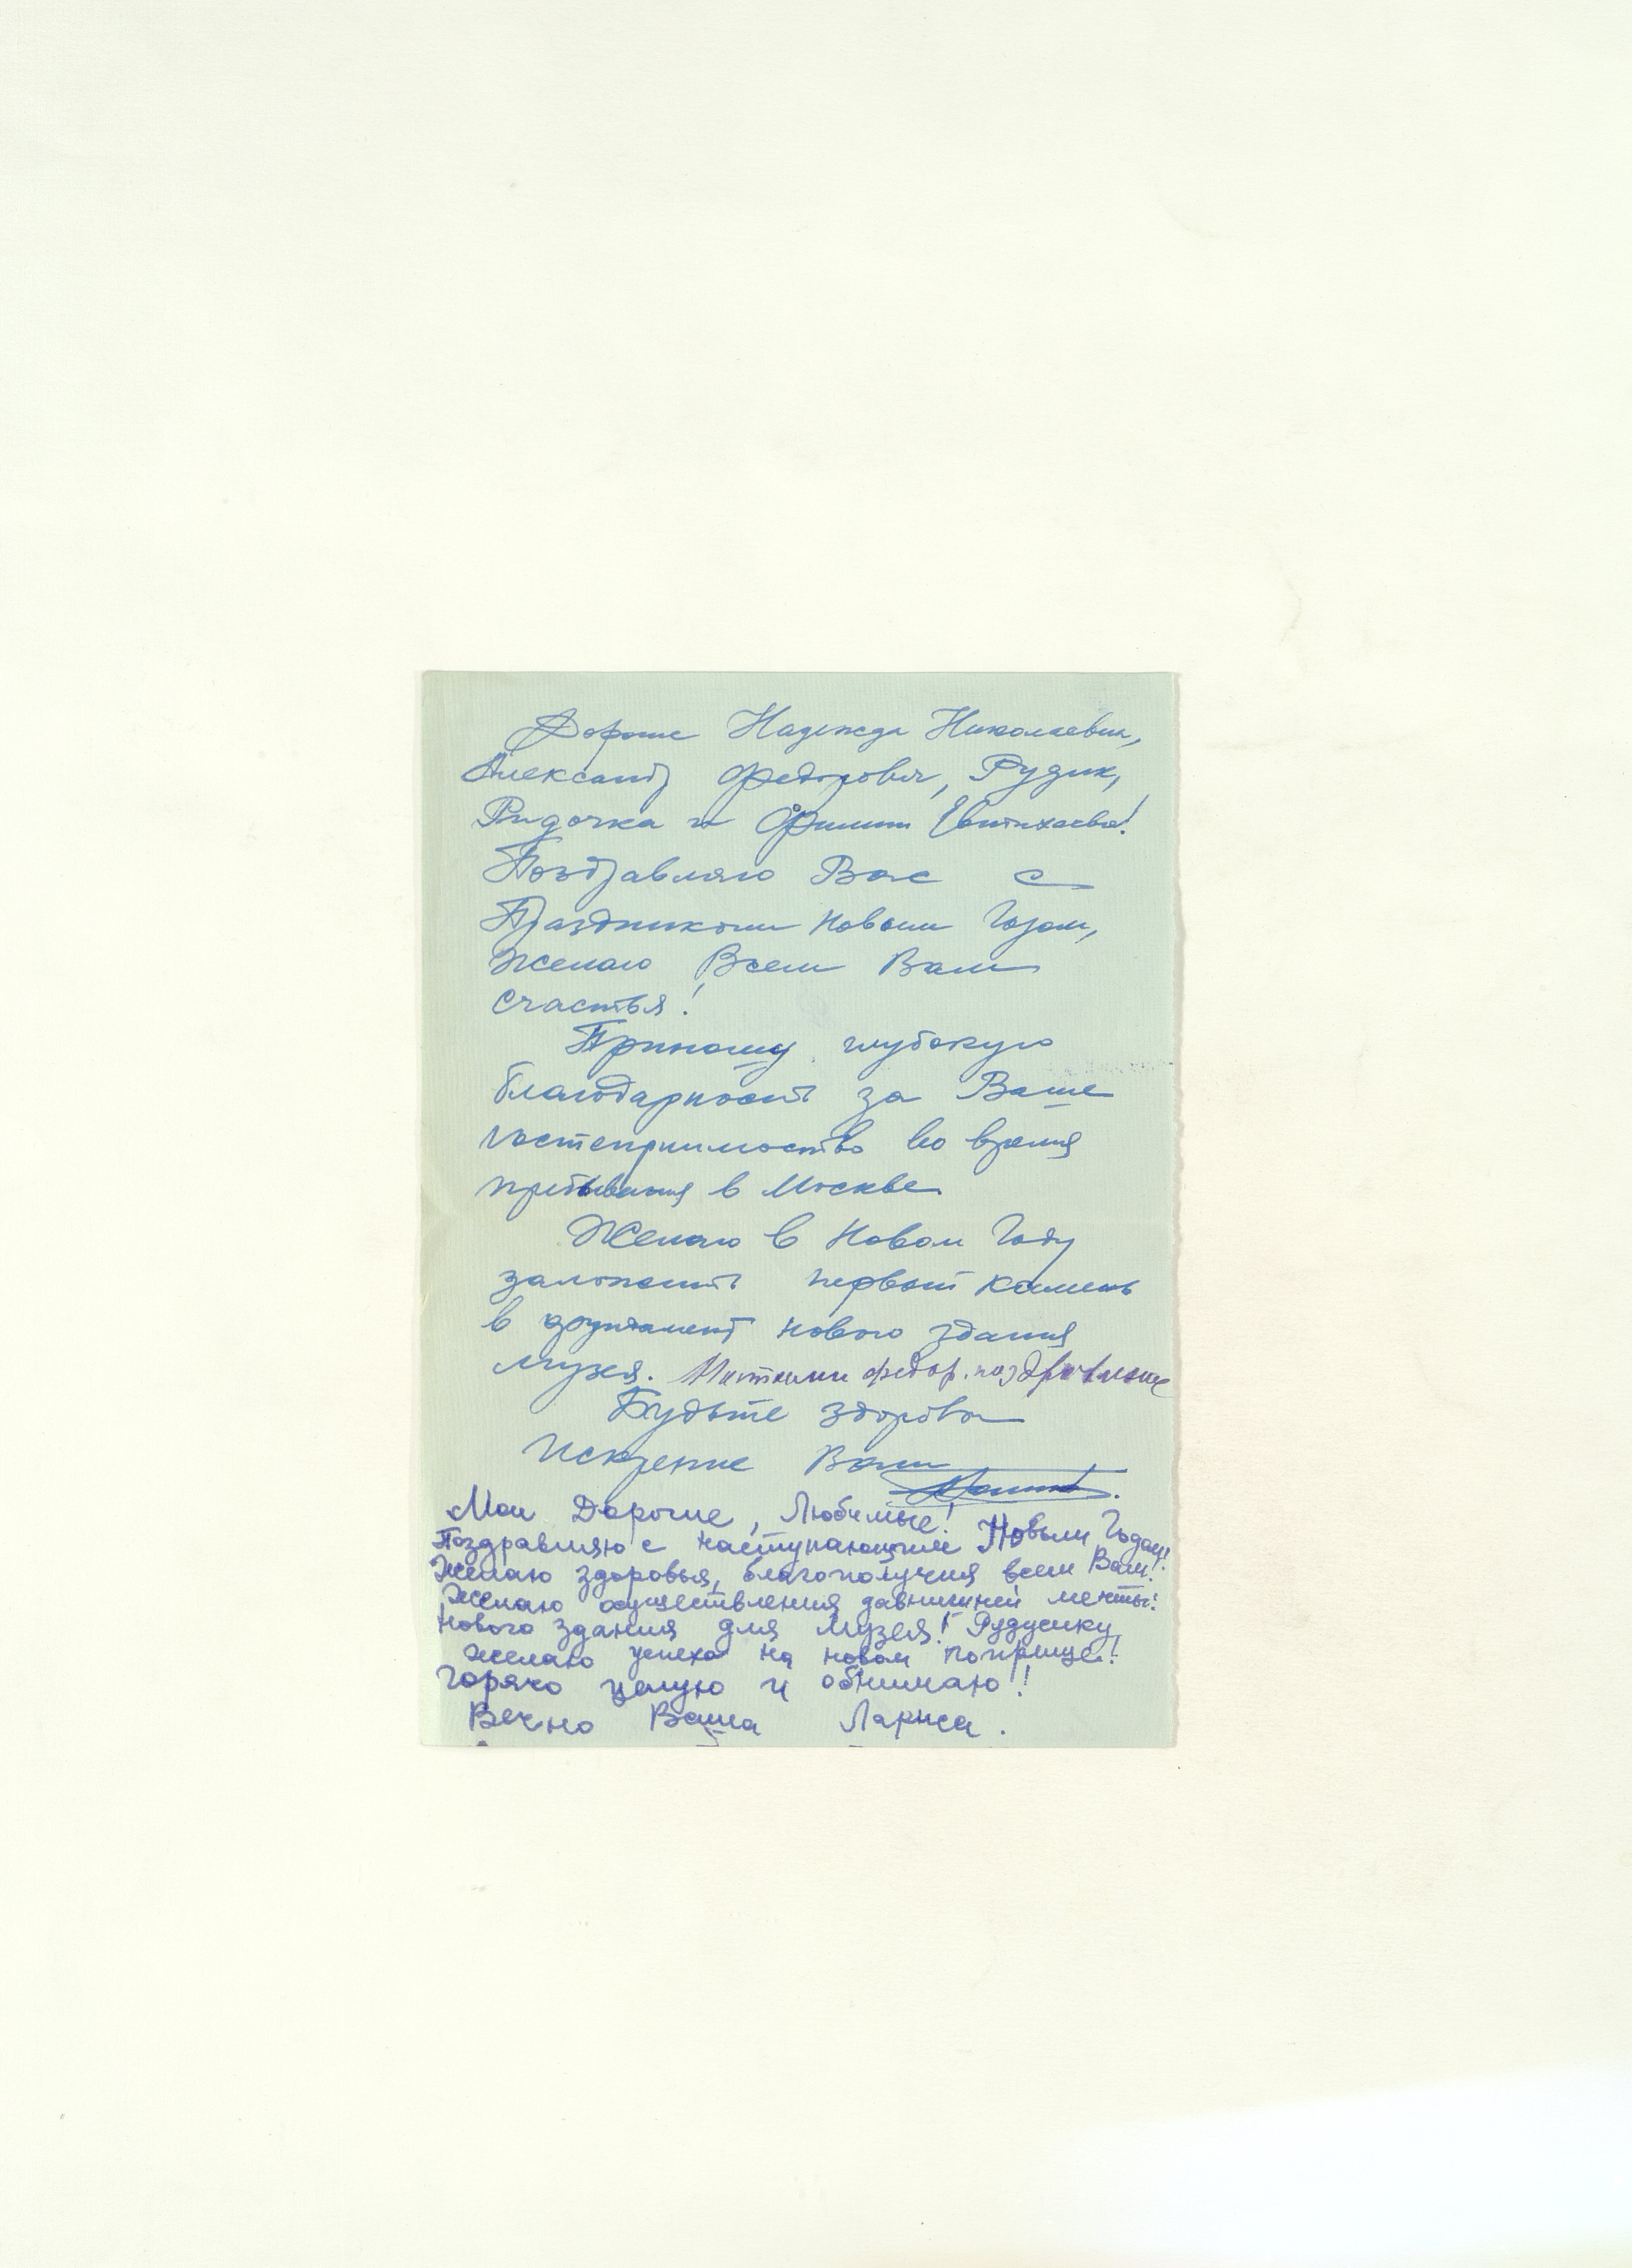 Дорогие Надежда Николаевна,
Александр Федорович, Рудик,
Ридочка и Филипп Евтихеевич!
Поздравляю Вас с
Праздником Новым Годом,
Желаю Всем Вам
счастья!
Приношу глубокую
благодарность за Ваше
гостеприимство во время
пребывания в Москве
Желаю в Новом Году
заложить первый камень
в фундамент нового здания
музея. федор. поздравление
Будьте здоровы
Искренне Ваш
Мои Дорогие, Любимые!
Поздравляю с наступающим Новым Годом!
Желаю здоровья, благополучия всем Вам!
Желаю осуществления давнишней мечты:
нового здания для Музея! Рудусику
желаю успеха на новом поприще!
Горячо целую и обнимаю!
Вечно Ваша Лариса.